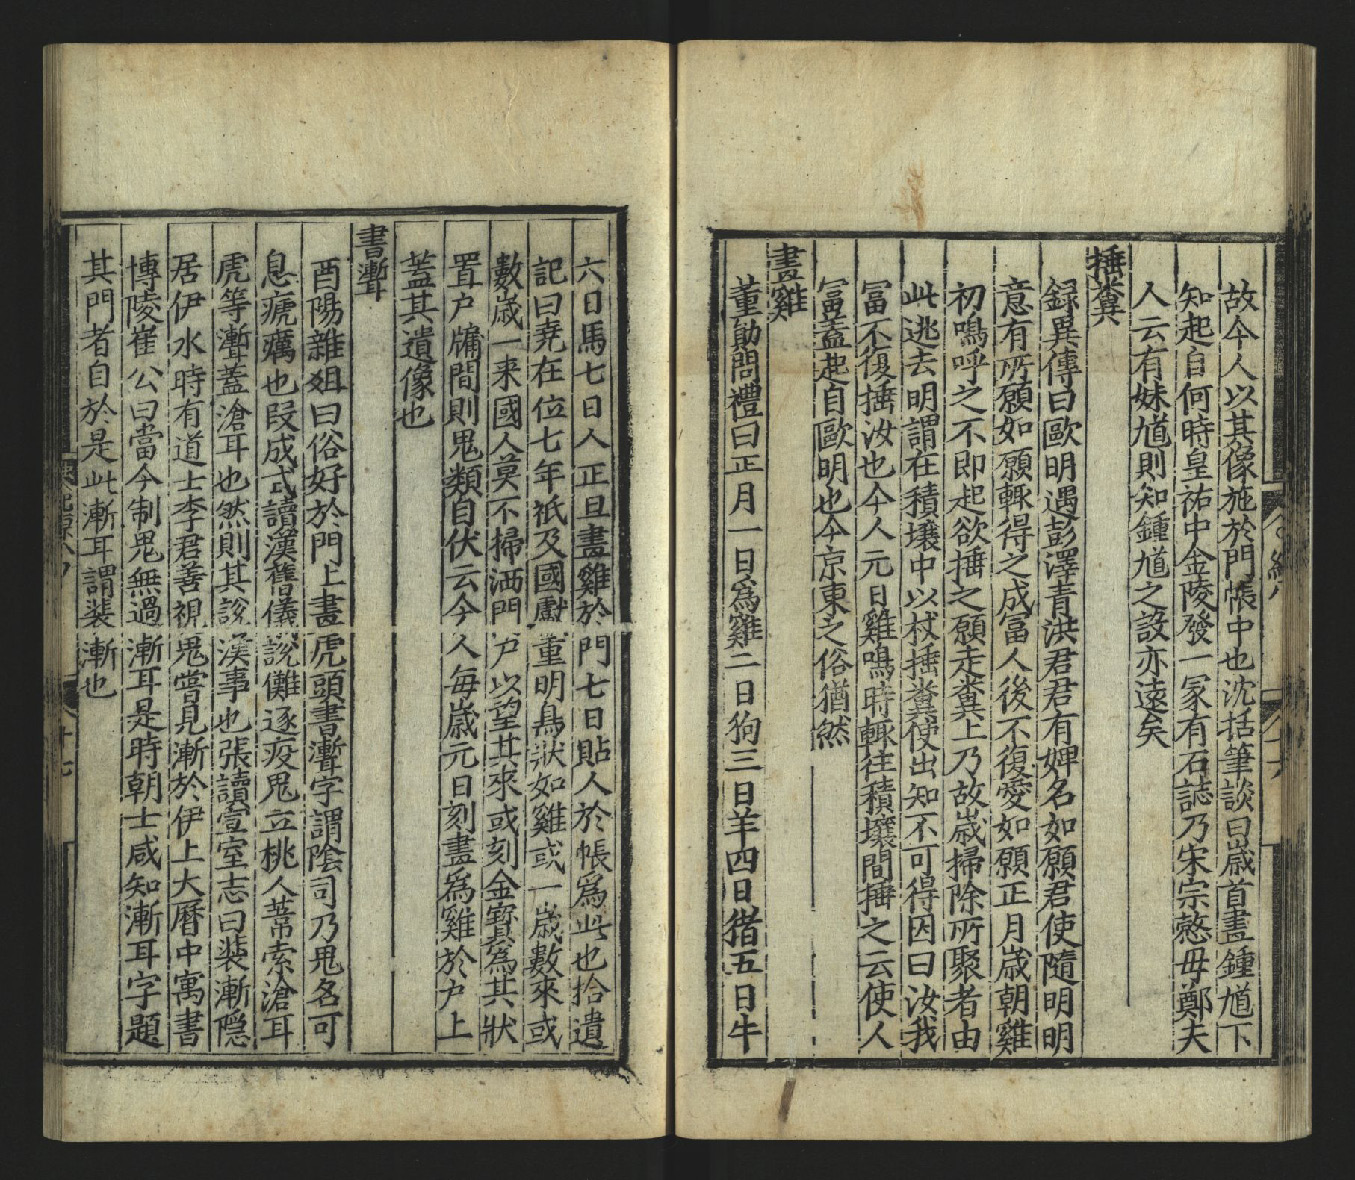 故今人以其像施於門帳中也沈括筆談曰歲首畫鍾馗下
知起自何時皇祐中金陵發一冢有石誌乃宋宗愨母鄭夫
人云有妹馗則知鍾馗之設亦遠矣
捶糞
録異傳曰歐明遇彭澤青洪君君有婢名如願君使隨明明
意有所願如願輒得之成富人後不復愛如願正月歲朝雞
初鳴呼之不即起欲捶之願走糞上乃故歲掃除所聚者由
此逃去明謂在積壤中以杖捶糞使出知不可得因曰汝我
富不復捶汝也今人元日雞鳴時輒往積壤間捶之云使人
冨蓋起自歐明也今京東之俗猶然
畫雞
董勛問禮曰正月一日為雞二日狗三日羊四日猪五日牛
六日馬七日人正旦畫雞於門七日貼人於帳為此也拾遺
記曰堯在位七年祇及國獻重明鳥狀如雞或一歲數來或
數歲一来國人莫不掃洒門户以望其來或刻金寳為其狀
置户牖間則鬼類自伏云今人毎歲元日刻畫為雞於户上
蓋其遺像也
書聻
酉陽雜俎曰俗好於門上畫虎頭書聻字謂隂司乃鬼名可
息瘧癘也叚成式讀漢舊儀說儺逐疫鬼立桃人葦索滄耳
虎等聻蓋滄耳也然則其設漢事也張讀宣室志曰裴漸隠
居伊水時有道士李君善視鬼嘗見漸於伊上大曆中寓書
博陵崔公曰當今制鬼無過漸耳是時朝士咸知漸耳字題
其門者自於是此漸耳謂裴漸也
十七